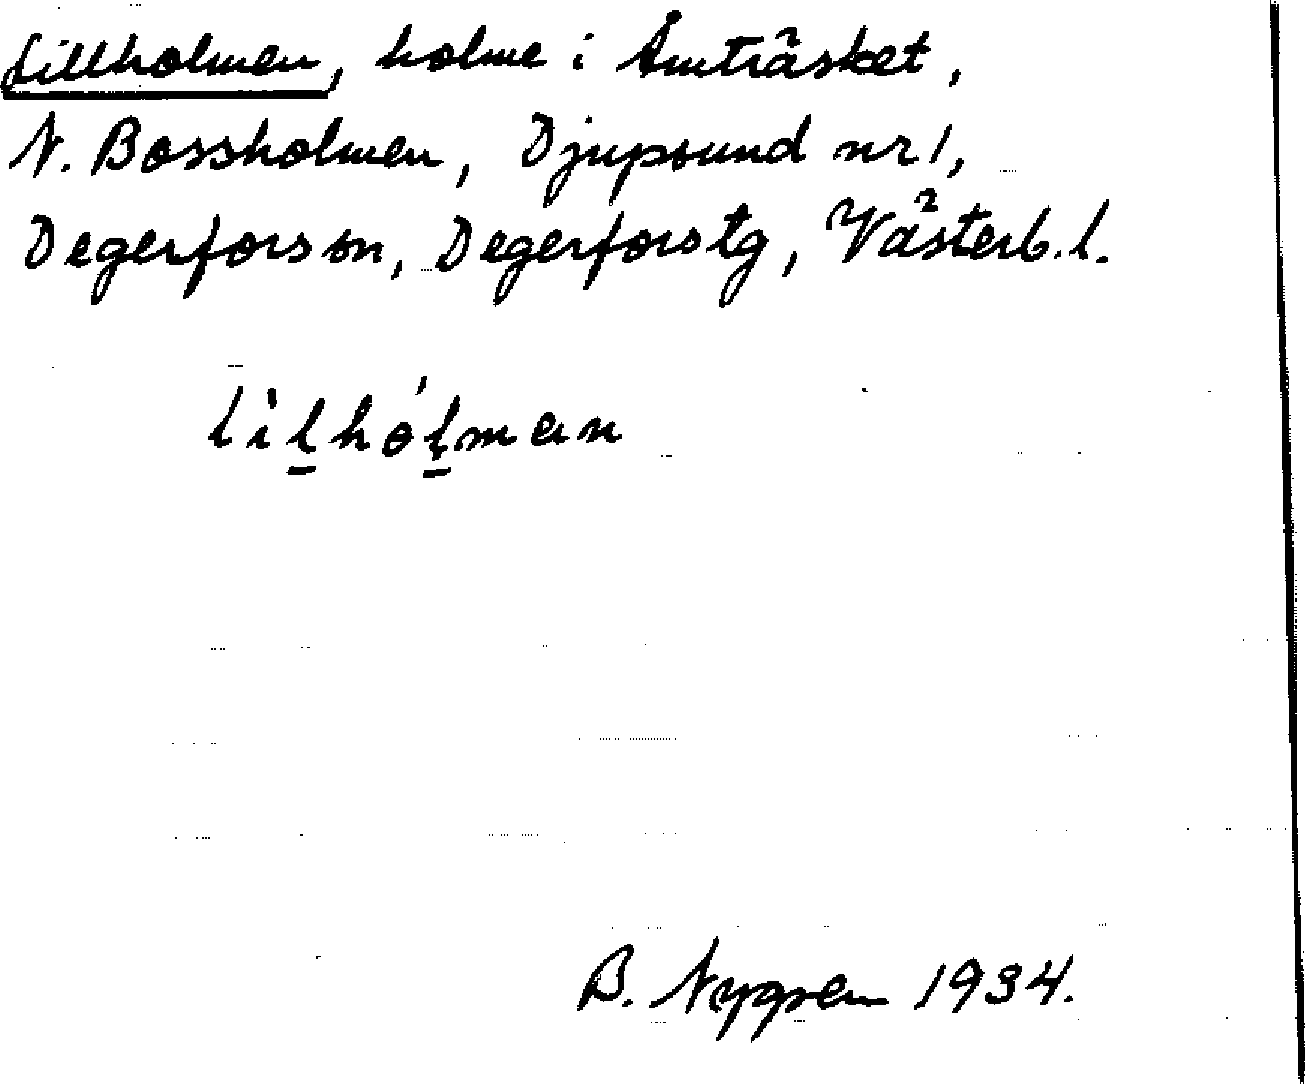 Lillholmen, holme i Åmträsket,
N. Bossholmen, Djupsund nr 1,
Degerfors sn, Degerfors tg, Västerb. l.
lilhólmɑn
B. Nygren 1934.